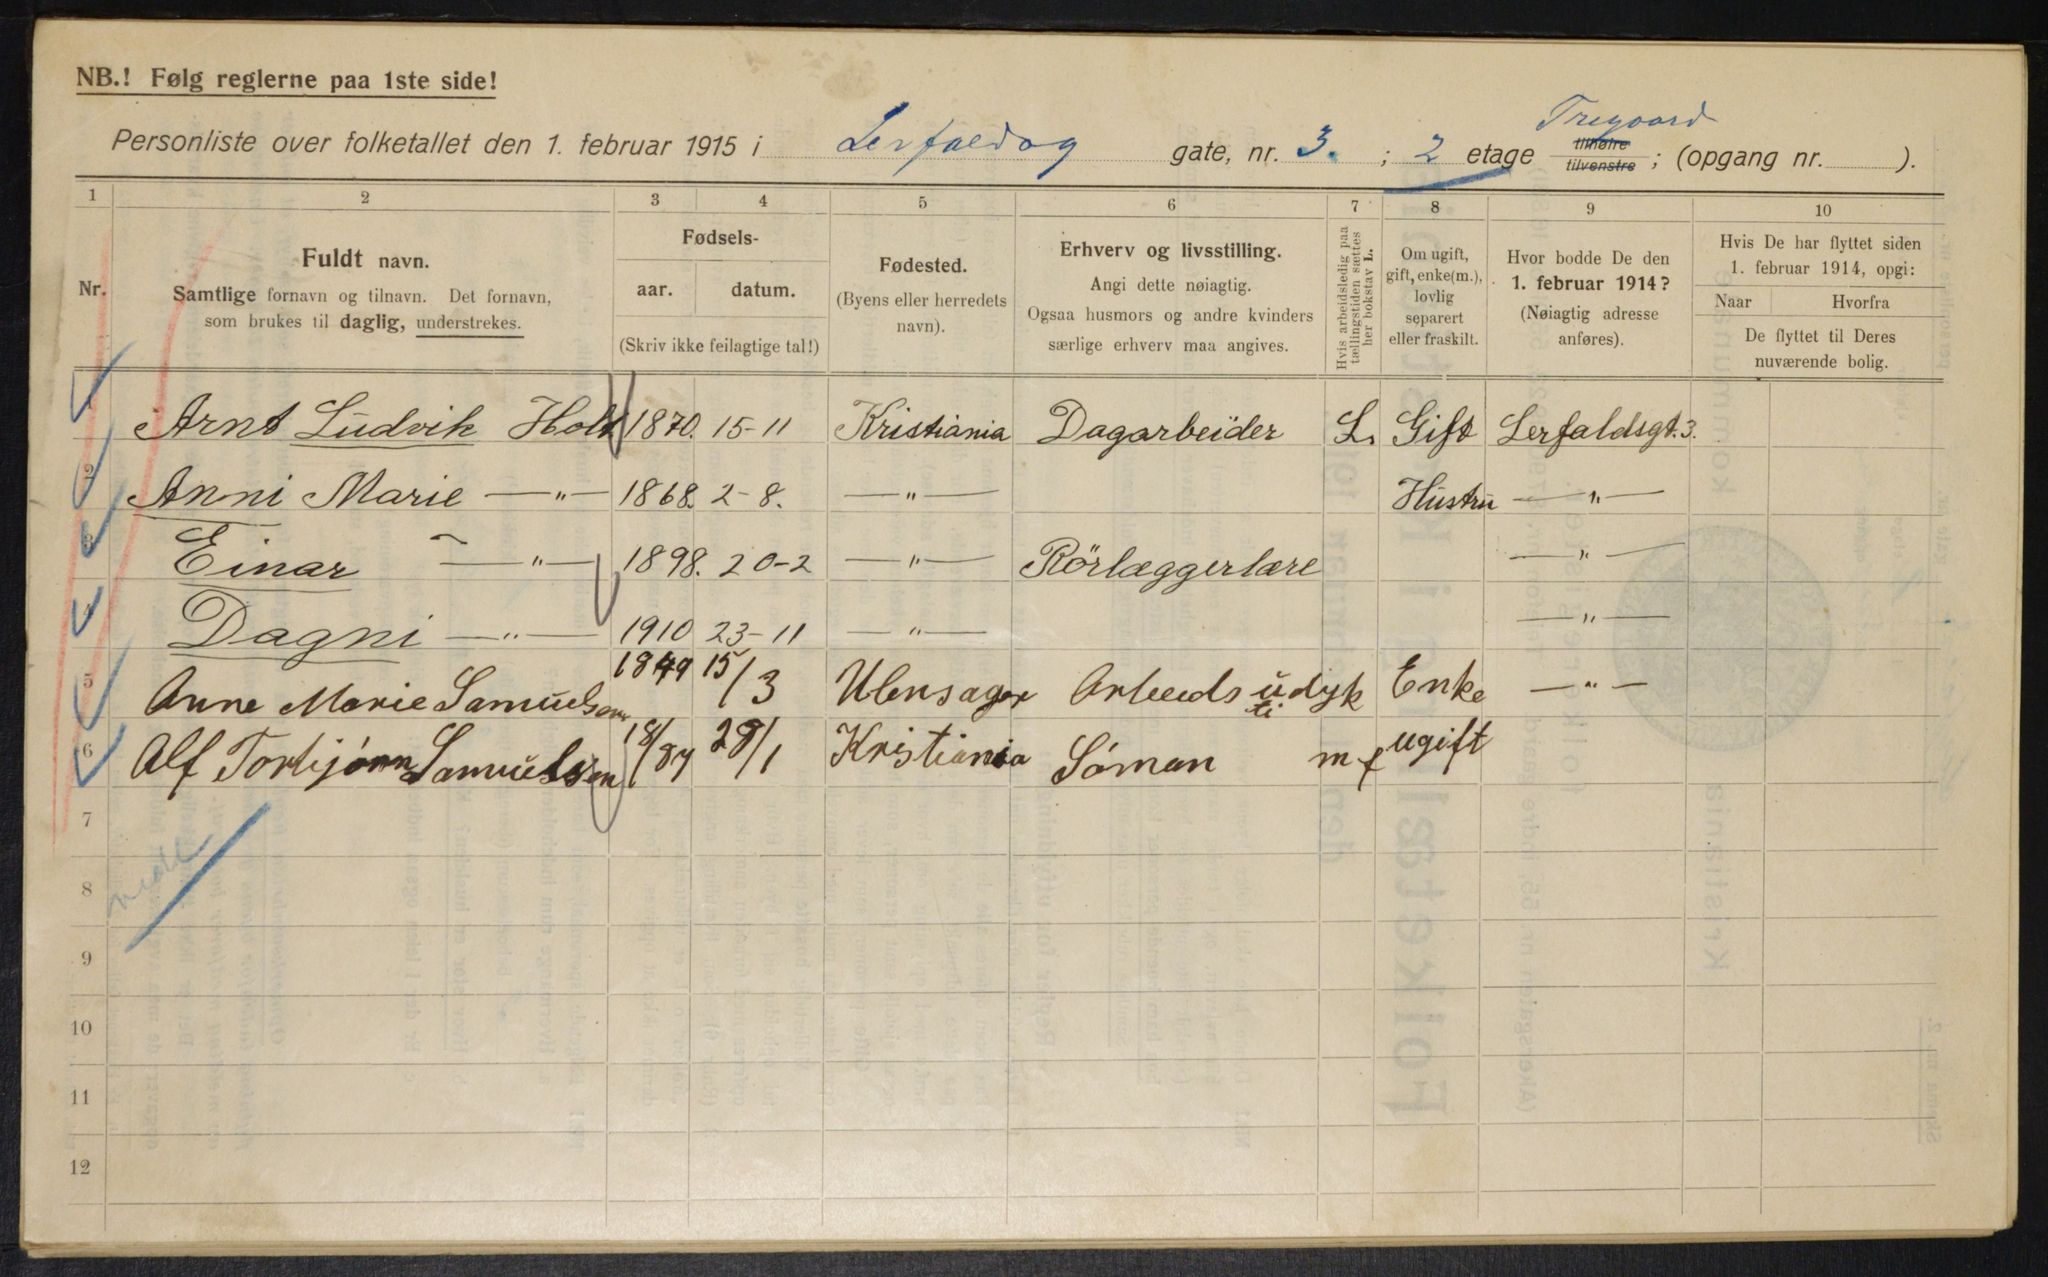 NB.! Følg reglerne paa 1ste side!
Tregaard
Personliste over folketallet den 1. februar 1915 i Lerfaldsg gate, nr. 3. ; 2 etage tilhøire tilvenstre ; (opgang nr. ).
1 2 3 4 5 6 7 8 9 10
Nr.
Fuldt navn.
Samtlige fornavn og tilnavn. Det fornavn,
som brukes til daglig, understrekes.
Fødsels-
aar. datum.
(Skriv ikke feilagtige tal!)
Fødested.
(Byens eller herredets
navn).
Erhverv og livsstilling.
Angi dette nøiagtig.
Ogsaa husmors og andre kvinders
særlige erhverv maa angives.
Hvis arbeidsledig paa
tællingstiden sættes
her bokstav L.
Om ugift,
gift, enke(m.),
lovlig
separert
eller fraskilt.
Hvor bodde De den
1. februar 1914?
(Nøiagtig adresse
anføres).
Hvis De har flyttet siden
1. februar 1914, opgi:
Naar Hvorfra
De flyttet til Deres
nuværende bolig.
Arnt Ludvik Holt 1870. 15-11 Kristiania Dagarbeider L. Gift Lerfaldsgt. 3.
2 Anni Marie —"— 1868. 2-8. —"— Hustru —"—
3 Einar —"— 1898. 20-2 —"— Rörlæggerlære —"—
4 Dagni —"— 1910 23-11 —"— —"—
5 Anne Marie Samuelsen 1849 15/3 Ulensager Arbeids udyk Enke —"—
ti
6 Alf Torbjörn Samuelsen 18/87 28/1 Kristiania Sóman m f ugift
7
8
9
10
11
12